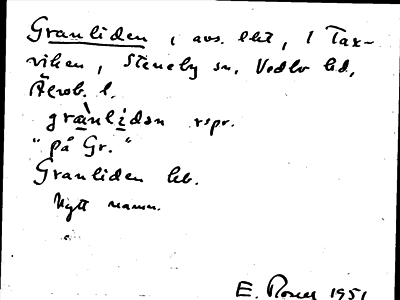 Granliden, avs. lht, i Tax-
viken, Steneby sn, Vedbo hd,
Älvsb. l.
grànlìdan rspr.
"på Gr."
Granliden kb.
Nytt namn.
E. Rosell 1951